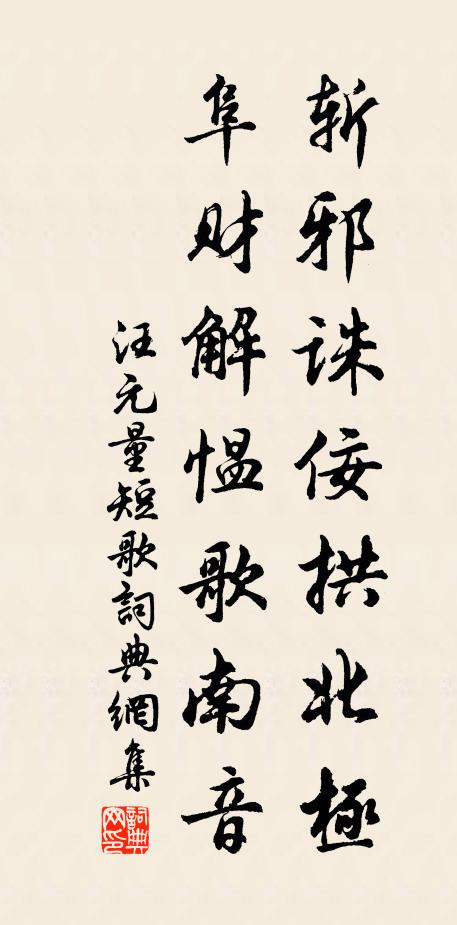 斩邪诛佞拱北極
阜财解愠歌南音
汪元量短歌詞典網集
詞典網印